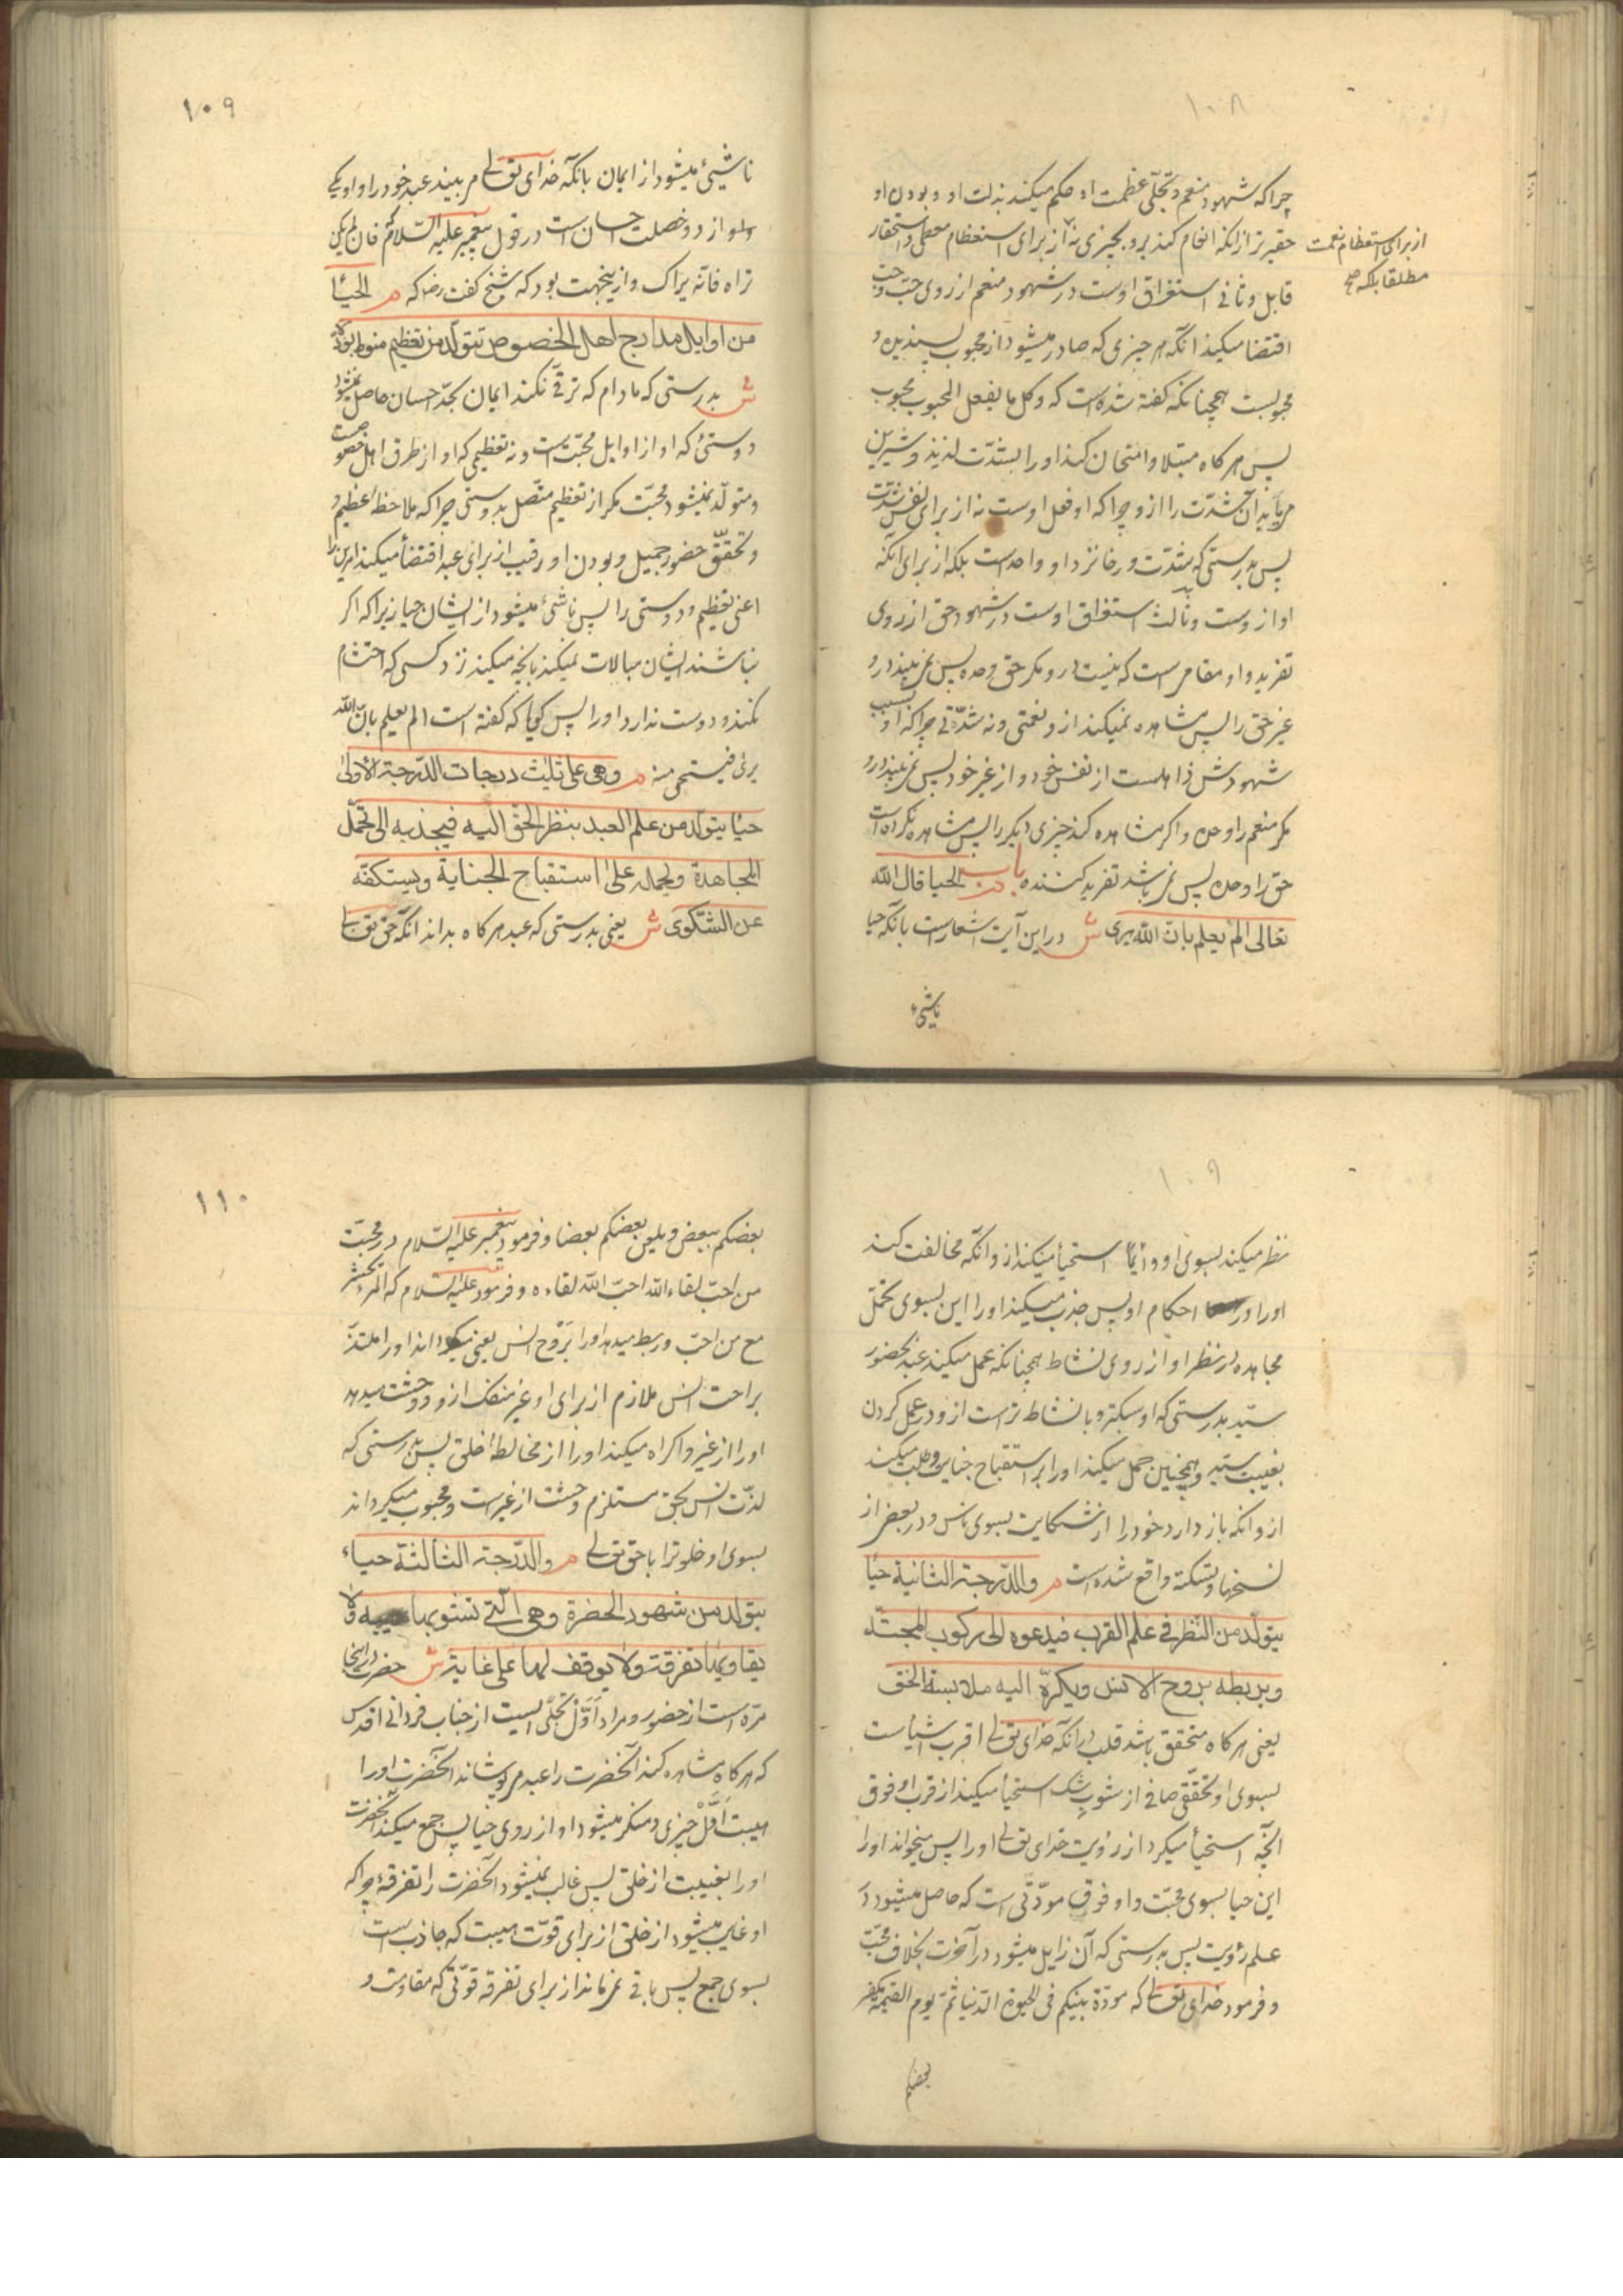 ۱۰۸
چرا که شهود منعم و تجلّی عظمت او حکم میکند بذلت او و بودن او
حقیرتر از انکه انعام کند برو بچیزی نه از برای استعظام معطی و استحقار
از برای استعظام نعمت
مطلقا بلکه صح
قابل و ثانی استغراق اوست در شهود منعم از روی حبّ و حبّ
اقتضا میکند انکه هر چیزی که صادر میشود از محبوب پسندیده و
محبوبست همچنانکه کفته شده است که وکل ما یفعل المحبوب محبوب
پس هرکاه مبتلا و امتحان کند او را بشدّت لذیذ و شیرین
می‌یابد آن شدّت را ازو چرا که او فعل اوست نه از برای نفس شدّت
پس بدرستی که شدّت و رخا نزد او واحدست بلکه از برای انکه
او ازوست و ثالث استغراق اوست در شهود حق از روی
تفرید و او مقامی است که نیست درو مکر حق وحده پس نمی‌بیند درو
غیر حق را پس مشاهده نمیکند ازو نعمتی و نه شدّتی چرا که او بسبب
شهودش ذاهلست از نفس خود و از غیر خود پس نمی‌بیند درو
مکر منعم را وحده و اکر مشاهده کند چیزی دیکر را پس مشاهده نکرده است
حق را وحده پس نمی‌باشد تفرید کننده باب الحیا قال الله
تعالی الم یعلم بان الله یری ش در این آیت اشعارست بانکه حیا
ناشیء
۱۰۹
ناشیء میشود از ایمان بانکه خدای تعالی می‌بیند عبد خود را و او یکی
از دو خصلت احسان است در قول پیغمبر علیه السّلام که فان لم یکن
تراه فانّه یراک و ازینجهت بود که شیخ کفت رضه که م الحیأ
من اوایل مدارج اهل الخصوص تتولّد من تعظیم منوط بودّ
ش بدرستی که مادام که ترقی نکند ایمان بحدّ احسان حاصل نمیشود
دوستیء که او از اوایل محبّت است و نه تعظیمی که او از طرق اهل خصوصست
و متولّد نمیشود محبّت مکر از تعظیم متّصل بدوستی چرا که ملاحظۀ عظیم و
و تحقّق حضور جمیل و بودن او رقیب از برای عبد اقتضأ میکند امرین را
اعنی تعظیم و دوستی را پس ناشیء میشود از ایشان حیا زیرا که اکر
نباشند ایشان مبالات نمیکند بانچه میکند نزد کسی که احتشام
نکند و دوست ندارد او را پس کویا که کفته است الم یعلم بانّ الله
یری فیستحی منه م وهی علی ثلث درجات الدّرجة الاولی
حیأ یتولد من علم العبد بنظر الحق الیه فیجذبه الی تحمّل
المجاهدة ویحمله علی استقباح الجنایة ویستکفّه
عن الشکوی ش یعنی بدرستی که عبد هرکاه بداند انکه حق تعالی
۱۰۹
نظر میکند بسوی او دایما استحیأ میکند ازو انکه مخالفت کند
او را در احکام او پس جذب میکند او را این بسوی تحمّل
مجاهده در نظر او از روی نشاط همچنانکه عمل میکند عبد بحضور
سیّد بدرستی که او سبکتر و با نشاط تر است ازو در عمل کردن
بغیبت سیّد و همچنین حمل میکند او را بر استقباح جنایت و طلب میکند
ازو انکه باز دارد خود را از شکایت بسوی ناس و در بعض از
نسخها ویسکته واقع شده است م والدّرجة الثانیة حیأ
یتولّد من النّظر فی علم القرب فیدعوه الی رکوب المحبّة
ویربطه بروح الانس ویکرّه الیه ملابسة الخلق
یعنی هرکاه متحقق باشد قلب در انکه خدای تعالی اقرب اشیاست
بسوی او تحقّقی صافی از شوب شک استحیأ میکند از قرب او فوق
آنچه استحیأ میکرد از رؤیت خدای تعالی او را پس میخواند او را
این حیا بسوی محبّت و او فوق مودّتی است که حاصل میشود در
علم رؤیت پس بدرستی که آن زایل میشود در آخرت بخلاف محبّت
و فرمود خدای تعالی که مودّة بینکم فی الحیوة الدّنیا ثمّ یوم القیمة یکفر
بعضکم
۱۱۰
بعضکم ببعض ویلعن بعضکم بعضا و فرمود پیغمبر علیه السّلام در محبّت
من احبّ لقاء الله احبّ الله لقاءه و فرمود علیه السّلام که المرء یحشر
مع من احبّ و ربط میدهد او را برَوْح انس یعنی میکرداند او را ملتذّ
براحت انس ملازم از برای او غیر منفک ازو و وحشت میدهد
او را از غیر و اکراه میکند او را از مخالطۀ خلق پس بدرستی که
لذّت انس بحق مستلزم وحشت از غیرست و محبوب میکرداند
بسوی او خلوترا با حق تعالی م والدّرجة الثالثة حیاء
یتولد من شهود الحضرة وهی الّتی تشوبها هیبه ولا
یقاویها تفرقة ولا یوقف لها علی غایة ش حضرت در اینجا
مرّه است از حضور و مراد اوّل تجلّی است از جناب فردانی اقدس
که هرکاه مشاهده کند آنحضرت را عبد می‌پوشاند آنحضرت او را
هیبت اوّل چیزی و منکر میشود او از روی حیا پس جمع میکند آنحضرت
او را بغیبت از خلق پس غالب نمیشود آنحضرت را تفرقۀ چرا که
او غایب میشود از خلق از برای قوّت هیبت که جاذب است
بسوی جمع پس باقی نمی‌ماند از برای تفرقه قوّتی که مقاومت و